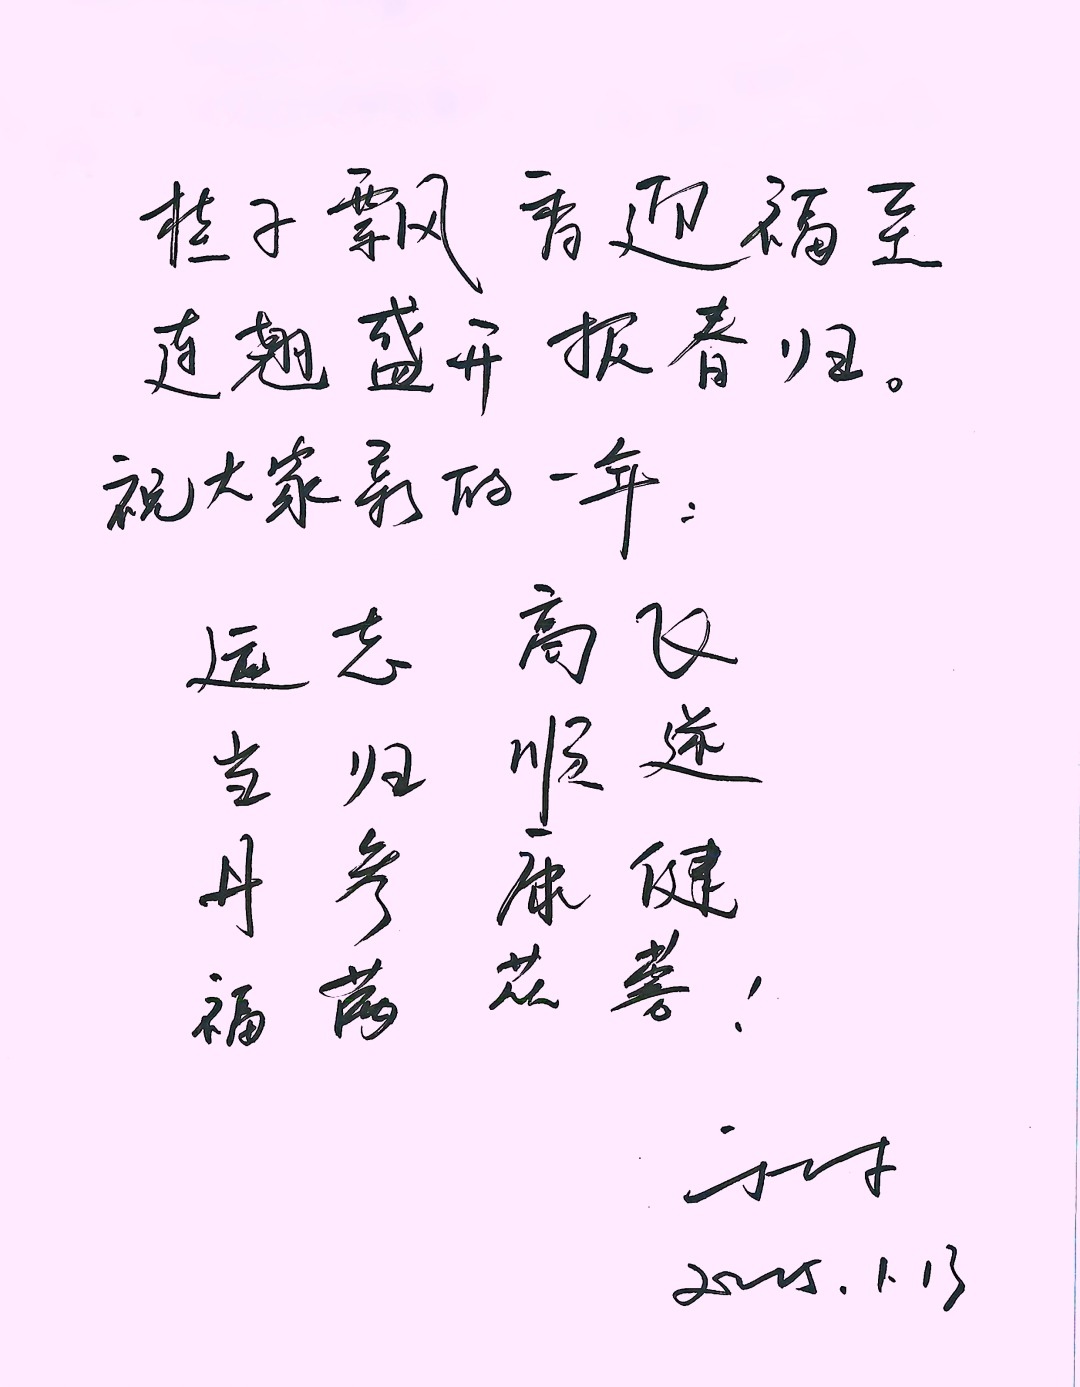 桂子飘香迎福至
连翘盛开报春归。
祝大家新的一年:
远志高飞
当归顺遂
丹参康健
福 !
2025.1.13